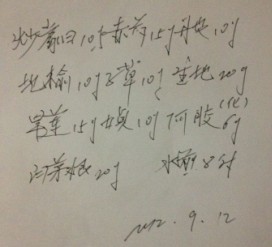 炒蒿白10g赤芍15g丹皮10g
地榆10g 紫草10g 生地20g
旱莲15g 女贞10g 阿胶(化)6g
白茅根20g
9.12